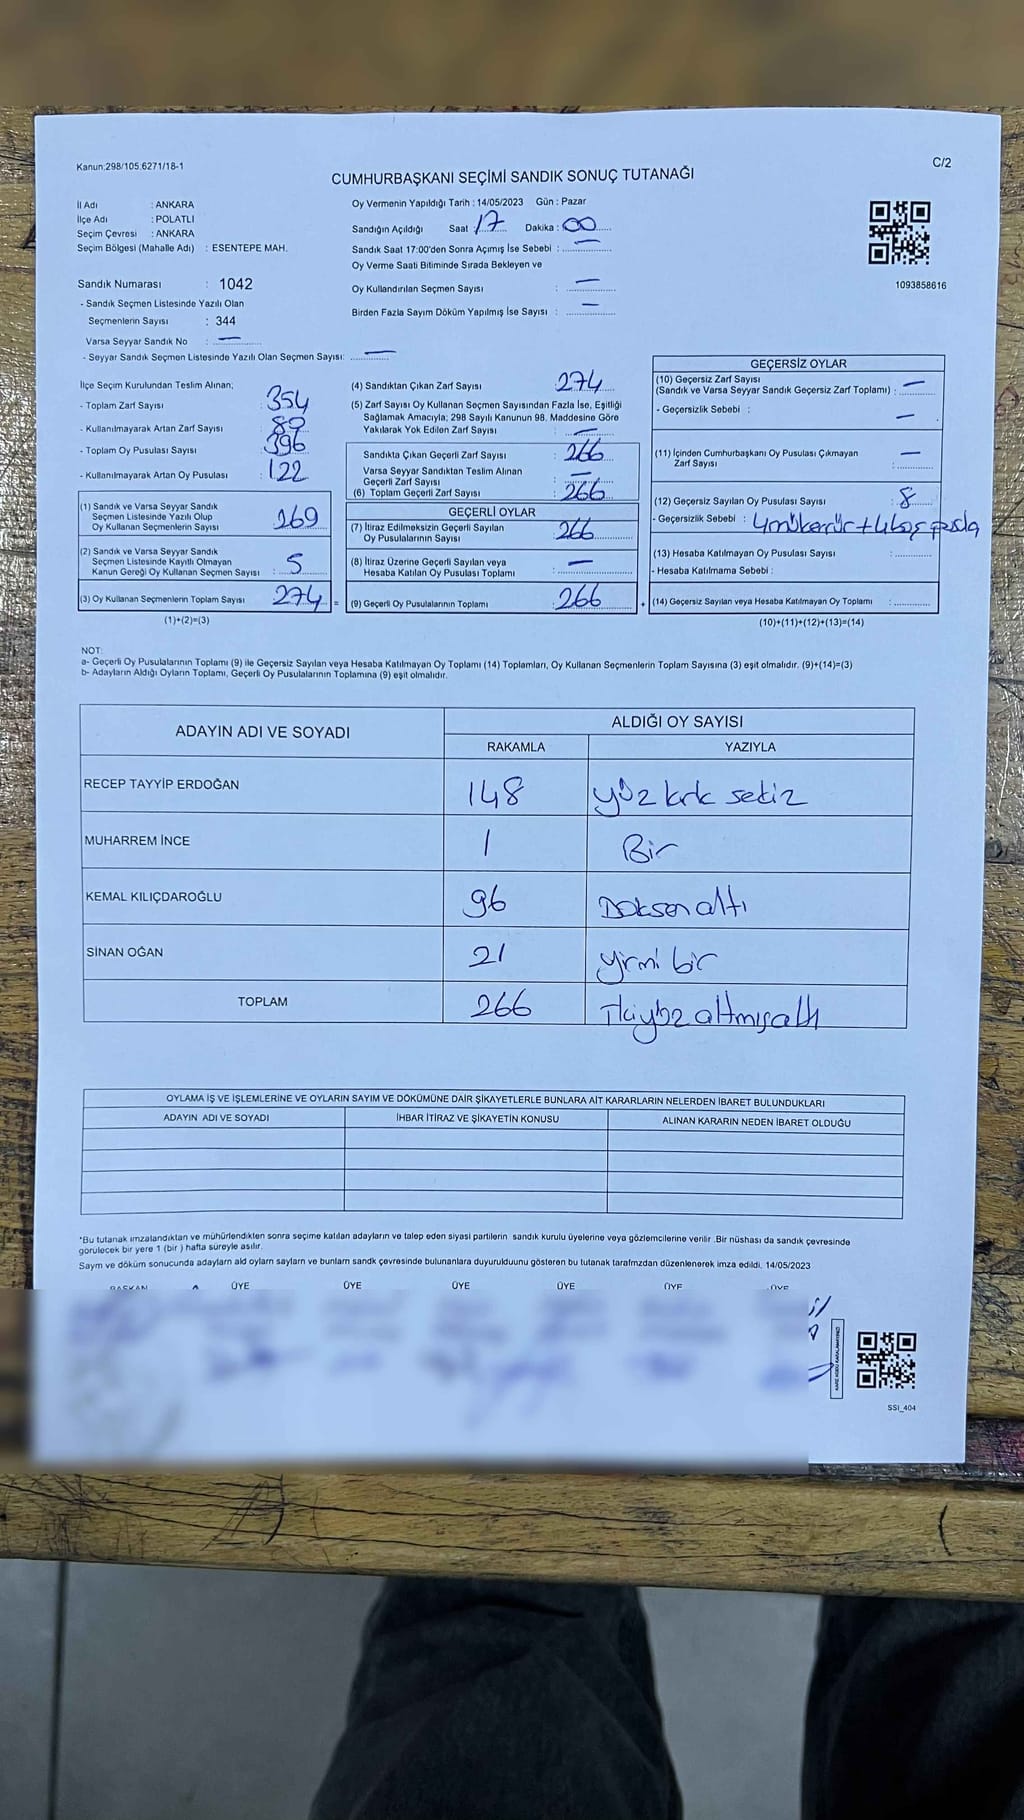 Kanun:298/105.6271/18-1
C/2
CUMHURBAŞKANI SEÇİMİ SANDIK SONUÇ TUTANAĞI
İl Adı : ANKARA
İlçe Adı : POLATLI
Seçim Çevresi : ANKARA
Seçim Bölgesi (Mahalle Adı) : ESENTEPE MAH.
Oy Vermenin Yapıldığı Tarih : 14/05/2023 Gün : Pazar
Sandığın Açıldığı Saat : 17 Dakika : 00
Sandık Saat 17:00'den Sonra Açımış İse Sebebi : —
Oy Verme Saati Bitiminde Sırada Bekleyen ve
Oy Kullandırılan Seçmen Sayısı : —
Birden Fazla Sayım Döküm Yapılmış İse Sayısı : —
1093858616
Sandık Numarası : 1042
- Sandık Seçmen Listesinde Yazılı Olan
Seçmenlerin Sayısı : 344
Varsa Seyyar Sandık No : —
- Seyyar Sandık Seçmen Listesinde Yazılı Olan Seçmen Sayısı: —
İlçe Seçim Kurulundan Teslim Alınan;
- Toplam Zarf Sayısı : 354
- Kullanılmayarak Artan Zarf Sayısı : 80
- Toplam Oy Pusulası Sayısı : 396
- Kullanılmayarak Artan Oy Pusulası : 122
(1) Sandık ve Varsa Seyyar Sandık
Seçmen Listesinde Yazılı Olup
Oy Kullanan Seçmenlerin Sayısı : 269
(2) Sandık ve Varsa Seyyar Sandık
Seçmen Listesinde Kayıtlı Olmayan
Kanun Gereği Oy Kullanan Seçmen Sayısı : 5
(3) Oy Kullanan Seçmenlerin Toplam Sayısı : 274 =
(1)+(2)=(3)
(4) Sandıktan Çıkan Zarf Sayısı : 274
(5) Zarf Sayısı Oy Kullanan Seçmen Sayısından Fazla İse, Eşitliği
Sağlamak Amacıyla; 298 Sayılı Kanunun 98. Maddesine Göre
Yakılarak Yok Edilen Zarf Sayısı : —
Sandıkta Çıkan Geçerli Zarf Sayısı : 266
Varsa Seyyar Sandıktan Teslim Alınan
Geçerli Zarf Sayısı : —
(6) Toplam Geçerli Zarf Sayısı : 266
GEÇERLİ OYLAR
(7) İtiraz Edilmeksizin Geçerli Sayılan
Oy Pusulalarının Sayısı : 266
(8) İtiraz Üzerine Geçerli Sayılan veya
Hesaba Katılan Oy Pusulası Toplamı : —
(9) Geçerli Oy Pusulalarının Toplamı : 266 +
GEÇERSİZ OYLAR
(10) Geçersiz Zarf Sayısı
(Sandık ve Varsa Seyyar Sandık Geçersiz Zarf Toplamı) : —
- Geçersizlik Sebebi : —
(11) İçinden Cumhurbaşkanı Oy Pusulası Çıkmayan
Zarf Sayısı : —
(12) Geçersiz Sayılan Oy Pusulası Sayısı : 8
- Geçersizlik Sebebi : 4 mükerrür + 4 boş pusla
(13) Hesaba Katılmayan Oy Pusulası Sayısı :
- Hesaba Katılmama Sebebi :
(14) Geçersiz Sayılan veya Hesaba Katılmayan Oy Toplamı :
(10)+(11)+(12)+(13)=(14)
NOT:
a- Geçerli Oy Pusulalarının Toplamı (9) ile Geçersiz Sayılan veya Hesaba Katılmayan Oy Toplamı (14) Toplamları, Oy Kullanan Seçmenlerin Toplam Sayısına (3) eşit olmalıdır. (9)+(14)=(3)
b- Adayların Aldığı Oyların Toplamı, Geçerli Oy Pusulalarının Toplamına (9) eşit olmalıdır.
ADAYIN ADI VE SOYADI ALDIĞI OY SAYISI
RAKAMLA YAZIYLA
RECEP TAYYİP ERDOĞAN 148 yüz kırk sekiz
MUHARREM İNCE 1 Bir
KEMAL KILIÇDAROĞLU 96 Doksan altı
SİNAN OĞAN 21 yirmi bir
TOPLAM 266 İkiyüz altmışaltı
OYLAMA İŞ VE İŞLEMLERİNE VE OYLARIN SAYIM VE DÖKÜMÜNE DAİR ŞİKAYETLERLE BUNLARA AİT KARARLARIN NELERDEN İBARET BULUNDUKLARI
ADAYIN ADI VE SOYADI İHBAR İTİRAZ VE ŞİKAYETİN KONUSU ALINAN KARARIN NEDEN İBARET OLDUĞU
*Bu tutanak imzalandıktan ve mühürlendikten sonra seçime katılan adayların ve talep eden siyasi partilerin sandık kurulu üyelerine veya gözlemcilerine verilir .Bir nüshası da sandık çevresinde
görülecek bir yere 1 (bir ) hafta süreyle asılır.
Sayım ve döküm sonucunda adayların ald oyların sayları ve bunların sandk çevresinde bulunanlara duyurulduunu gösteren bu tutanak tarafmzdan düzenlenerek imza edildi. 14/05/2023
BAŞKAN ÜYE ÜYE ÜYE ÜYE ÜYE ÜYE
KARE KODU KARALAMAYINIZ
SSI_404